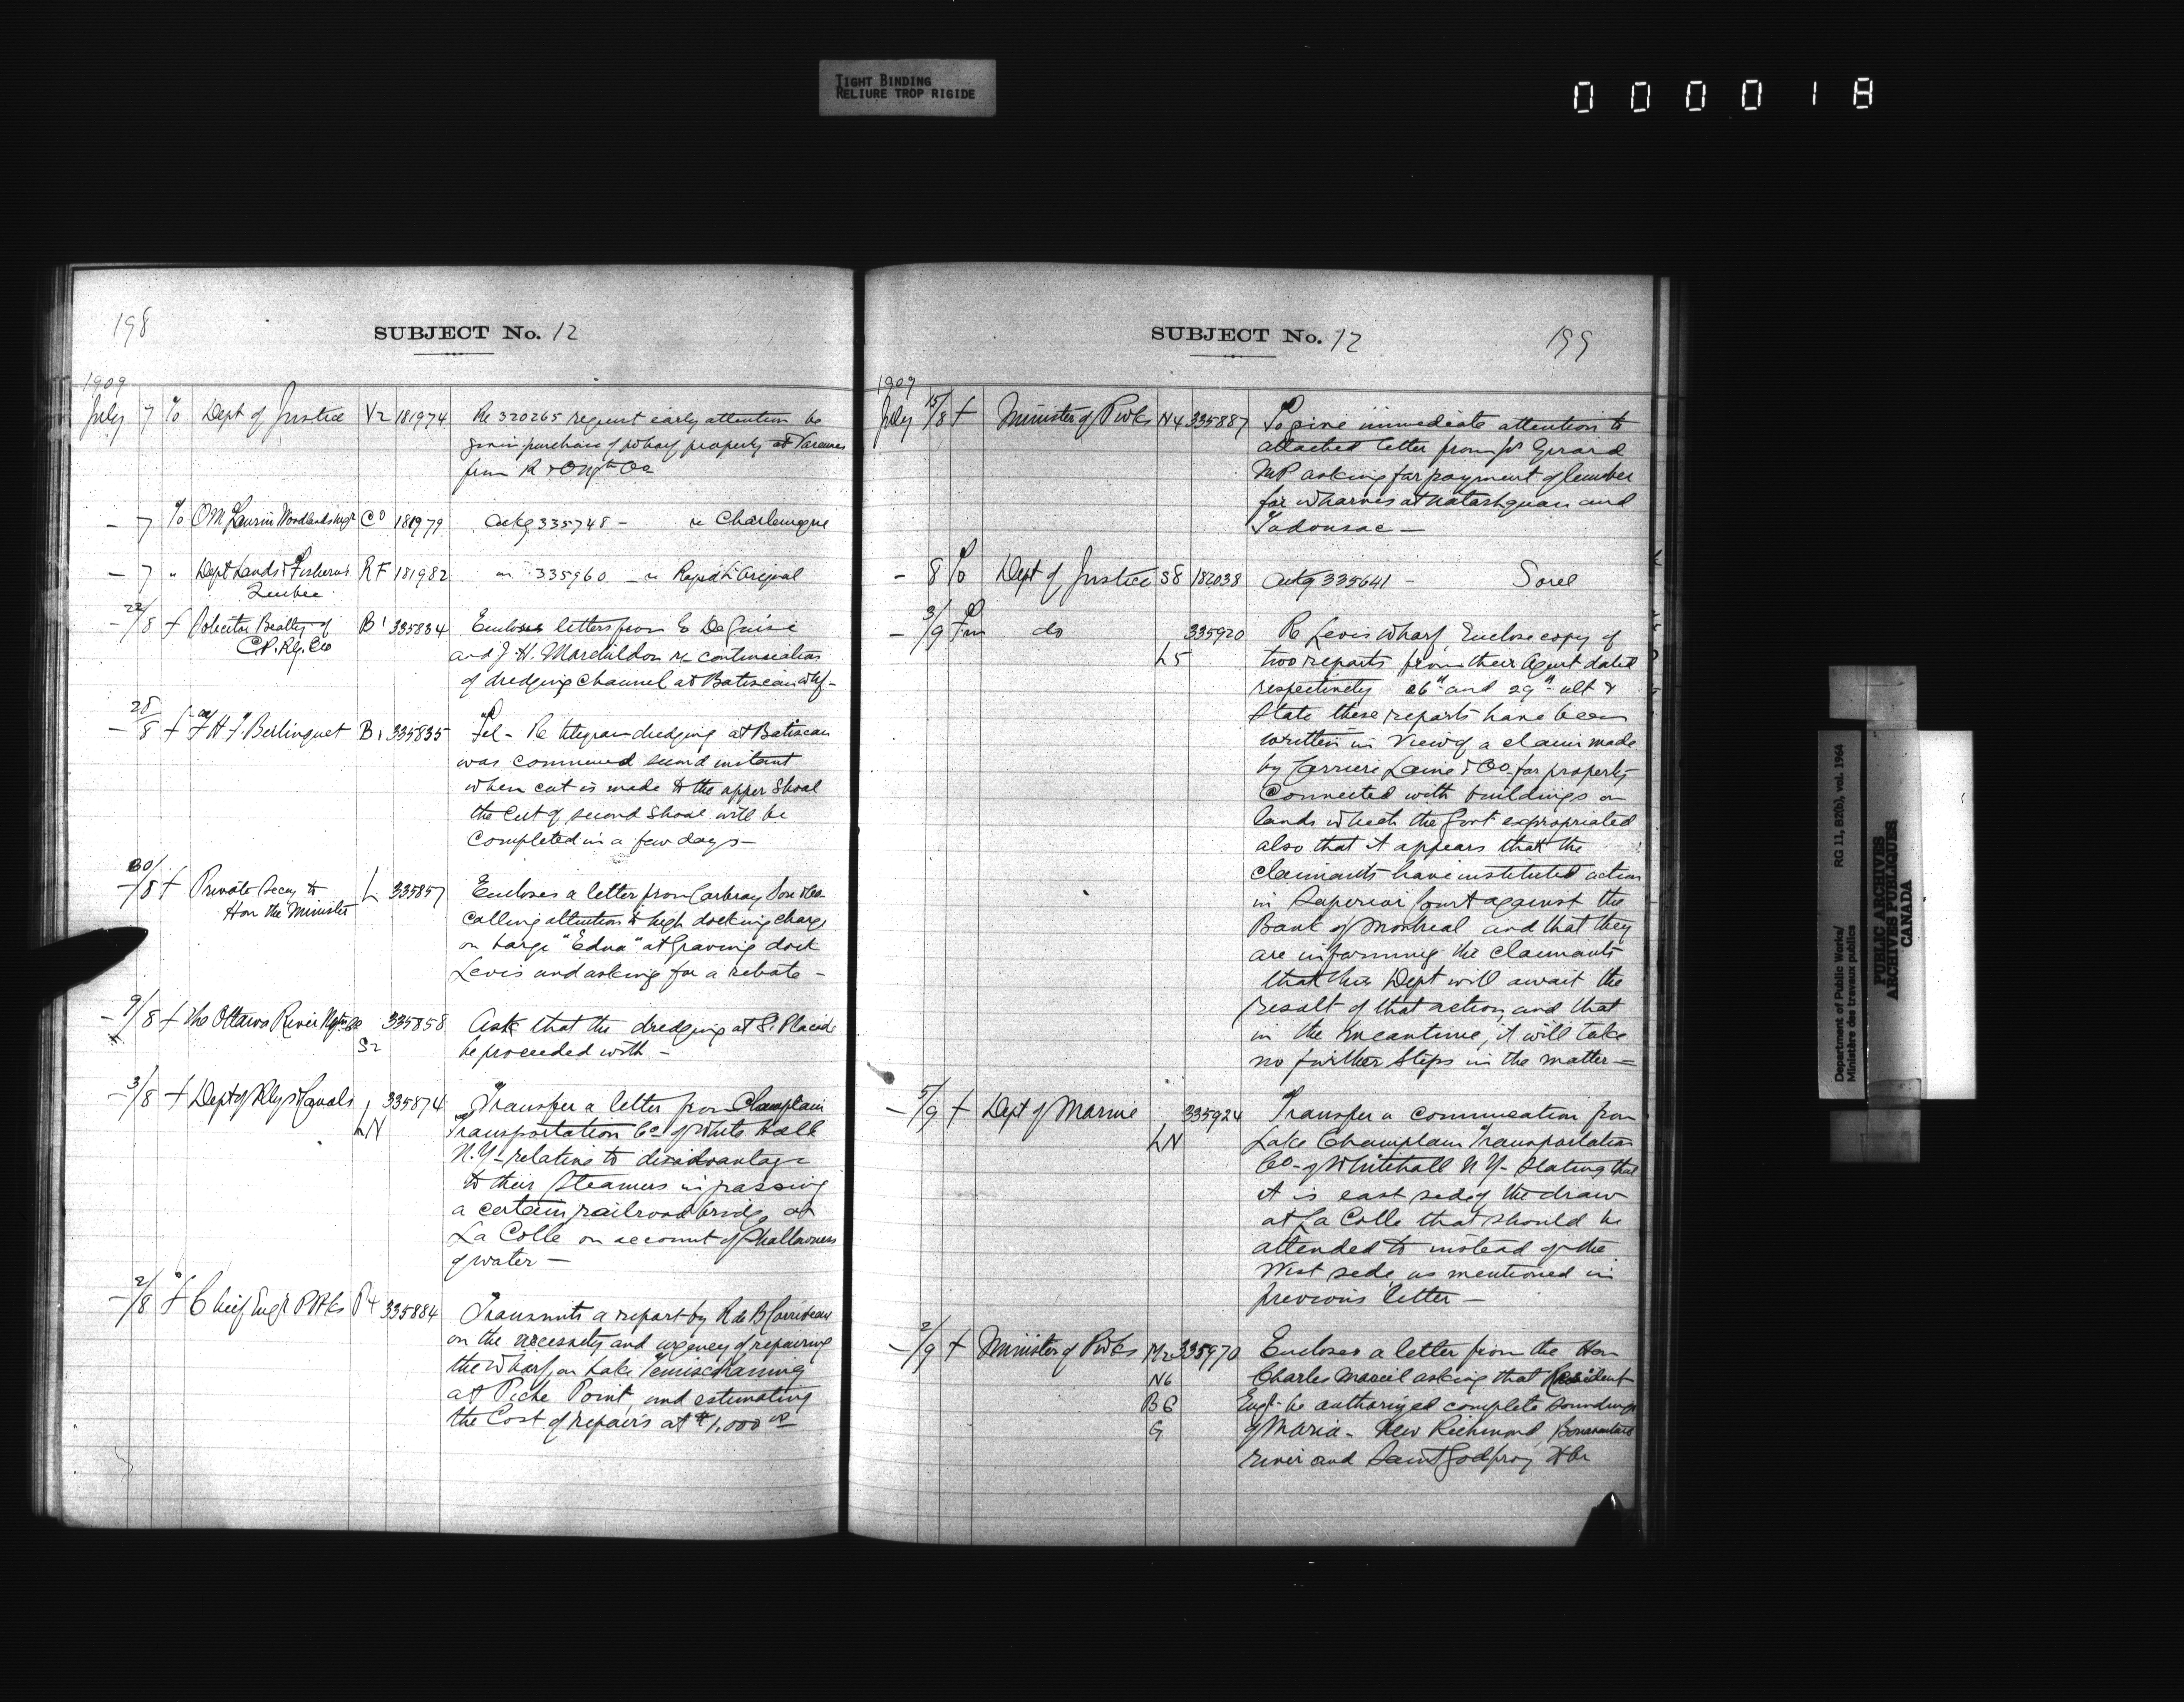 TIGHT BINDING
RELIURE TROP RIGIDE
000018
198
SUBJECT No. 12
1909
July 7 T/o Dept of Justice V2 181974 Re 320265 request early attention be
given purchase of wharf property at Varennes
from R & O Ngtn Co
- 7 T/o O M Laurin Woodlands CO 181979 Ackg 335748 - re Charlemagne
- 7 " Dept Lands & Fisheries RF 181982 " 335960 - re Rapid L'Original
Quebec
- 22/8 f Solicitor Beatty of B1 335834 Encloses letters from E DeGuise
C.P. Ry. Co
and J. H. Marchildon re continuation
of dredging channel at Batiscan whf -
- 28/8 f H. F. Berlinguet B1 335835 Tel - Re telegram dredging at Batiscan
was commenced second instant
when cut is made to the upper shoal
the cut of second shoal will be
completed in a few days -
- 30/8 f Private Secy to L 335857 Encloses a letter from Carbray Son & Co
Hon the Minister
calling attention to high docking charge
on barge "Edna" at Graving dock
Levis and asking for a rebate -
- 9/8 f The Ottawa River Ngtn Co S2 335858 Ask that the dredging at St Placide
be proceeded with -
- 3/8 f Dept of Rlys & Canals LN 335874 Transfer a letter from Champlain
Transportation Co of White Hall
N.Y - relating to disadvantage
to their Steamers in passing
a certain railroad bridge at
La Colle on account of Shallowness
of water -
- 2/8 f Chief Engr P Wks P4 335884 Transmits a report by R de B Corriveau
on the necessity and urgency of repairing
the Wharf, on Lake Temiscaming
at Piche Point, and estimating
the Cost of repairs at $1,000 00
SUBJECT No. 12
199
1909
July 15/8 f Minister of P Wks N4 335887 To give immediate attention to
attached letter from Js Girard
MP asking for payment of lumber
for wharves at Natashquan and
Tadousac -
- 8 T/o Dept of Justice S8 182038 Ackg 335641 - Sorel
- 3/9 Fm do L5 335920 Re Levis Wharf, Enclose copy of
two reports from their Agent dated
respectively 26th and 29th ult &
State these reports have been
written in view of a claim made
by Carrier Laine & Co for property
Connected with buildings on
lands which the Govt expropriated
also that it appears that the
claimants have instituted action
in Superior Court against the
Bank of Montreal and that they
are informing the claimants
that this Dept will await the
result of that action, and that
in the meantime, it will take
no further Steps in the matter -
- 5/9 f Dept of Marine LN 335924 Transfer a commucation from
Lake Champlain Transportation
Co - of Whitehall N Y - stating that
it is east side of the draw
at La Colle that should be
attended to instead of the
West side as mentioned in
previous letter -
- 2/9 f Minister of P Wks M2 335970 Encloses a letter from the Hon
N6 Charles Marcil asking that Resident
B6 Engr - be authorized complete soundings
G of Maria - New Richmond, Bonaventure
river and Saint Godfroy Hbr
Department of Public Works/ RG 11, B2(b), vol. 1964
Ministère des travaux publics
PUBLIC ARCHIVES
ARCHIVES PUBLIQUES
CANADA